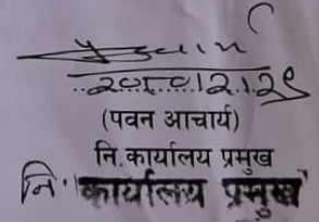 २०८०।२।२९
(पवन आचार्य)
नि.कार्यालय प्रमुख
नि. कार्यालय प्रमुख